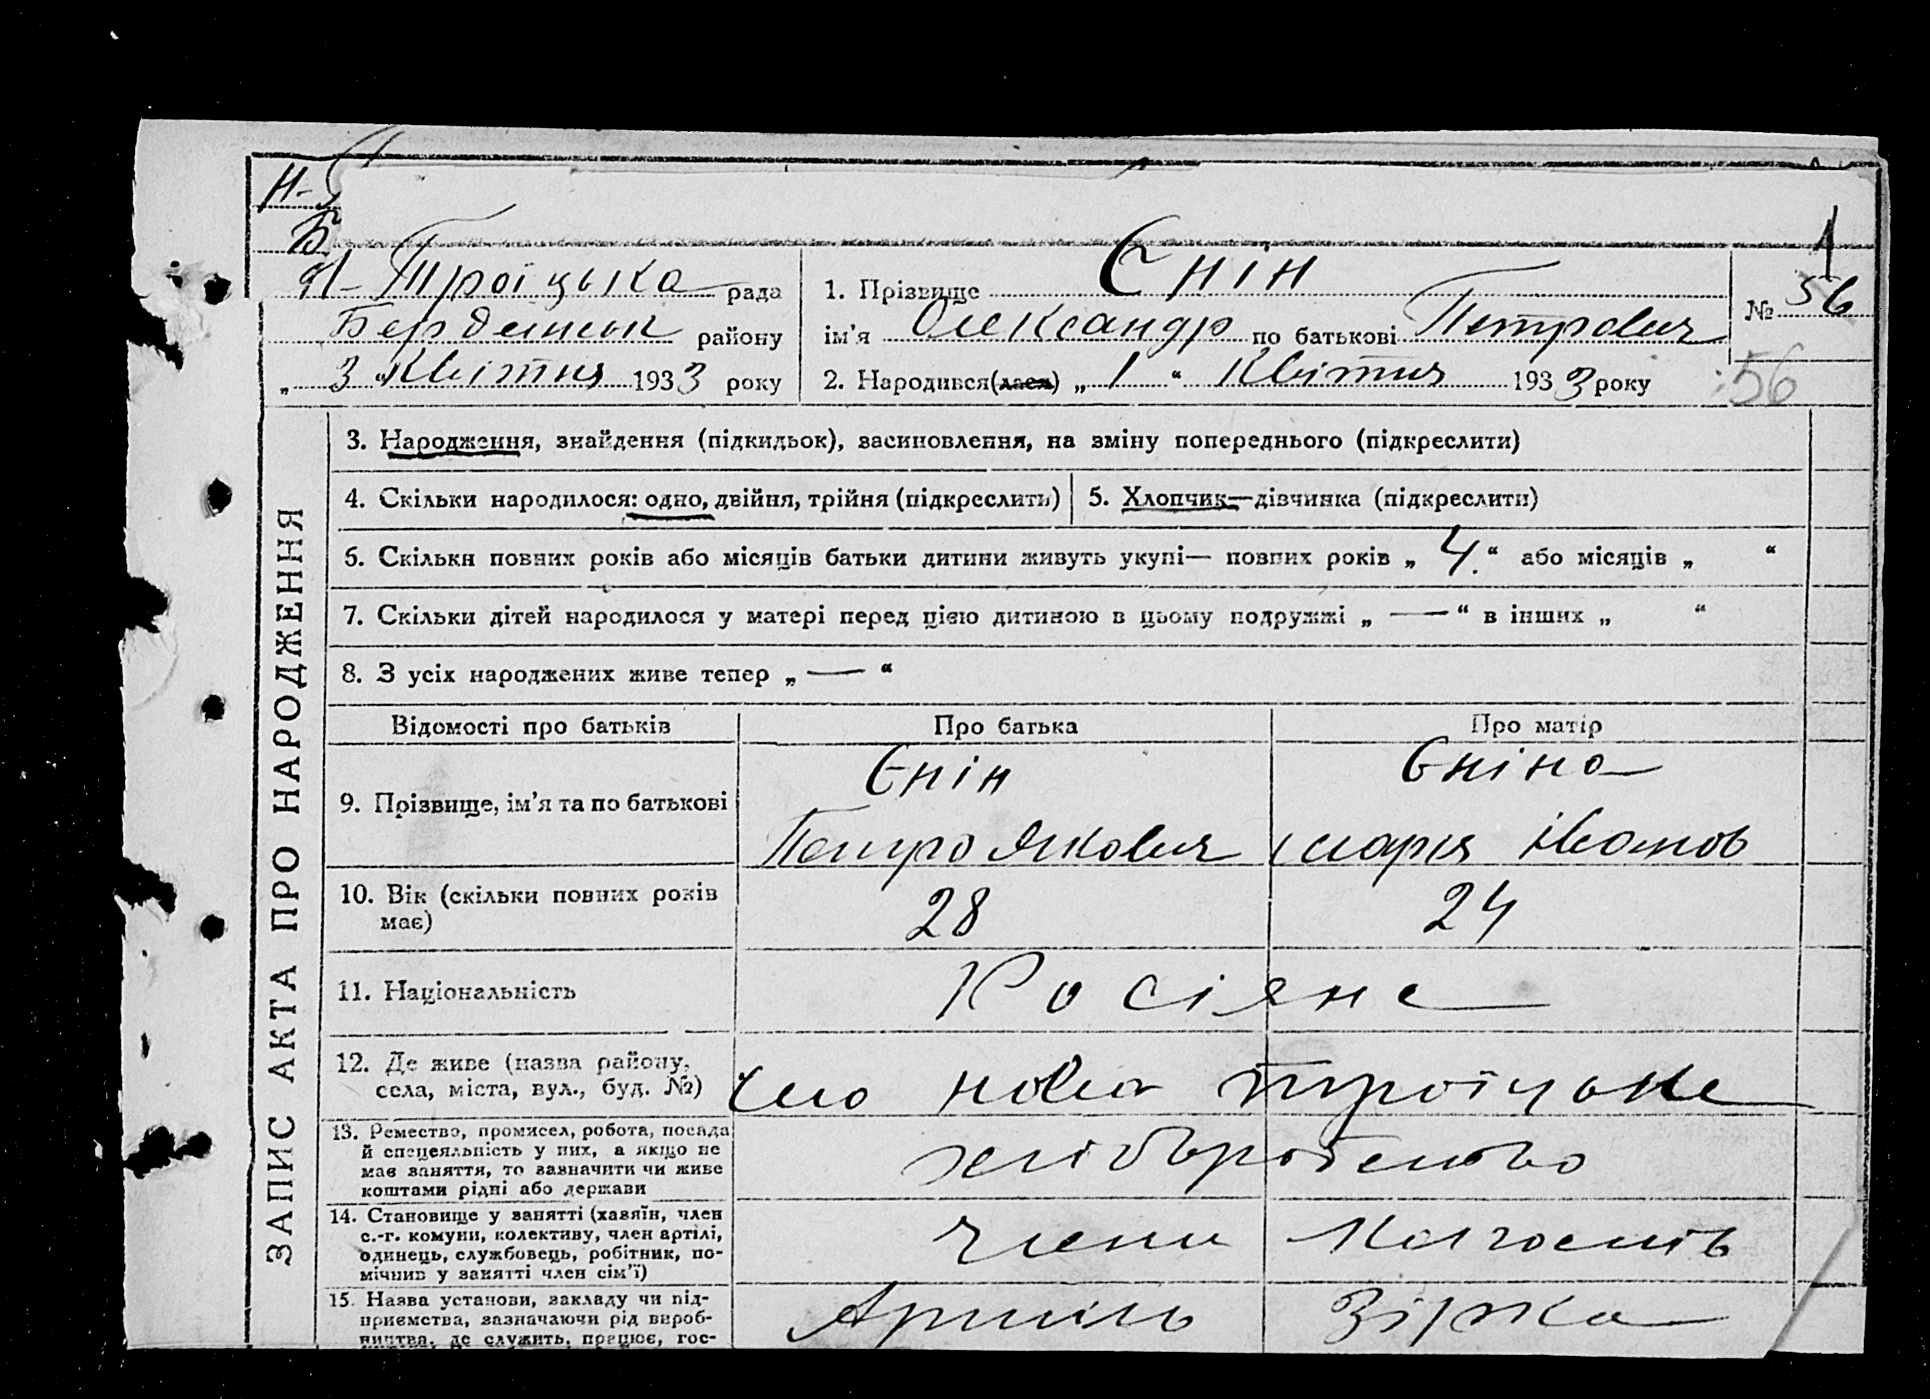 Н-
Б
Н-Троїцька рада
Бердянськ району
„ 3 “ Квітня 1933 року
1. Прізвище Єнін
ім'я Олександр по батькові Петрович
2. Народився(лася) „ 1 “ Квітня 1933 року
1
№ 56
56
ЗАПИС АКТА ПРО НАРОДЖЕННЯ
3. Народження, знайдення (підкидьок), засиновлення, на зміну попереднього (підкреслити)
4. Скільки народилося: одно, двійня, трійня (підкреслить)
5. Хлопчик—дівчинка (підкреслити)
6. Скільки повних років або місяців батьки дитини живуть укупі— повних років „ 4. “ або місяців „ “
7. Скільки дітей народилося у матері перед цією дитиною в цьому подружжі „ — “ в інших „ “
8. З усіх народжених живе тепер „ — “
Відомості про батьків
Про батька
Про матір
9. Прізвище, ім'я та по батькові
Єнін
Петро Якович
Єніна
Марія Іванов
10. Вік (скільки повних років
має)
28
24
11. Національність
Росіяне
12. Де живе (назва району,
села, міста, вул., буд. №)
село Ново Троїцьке
13. Ремество, промисел, робота, посада
й спецеяльність у них, а якщо не
має заняття, то зазначити чи живе
коштами рідні або держави
хліборобство
14. Становище у занятті (хазяїн, член
с.-г. комуни, колективу, член артілі,
одинець, службовець, робітник, по-
мічник у занятті член сім'ї)
члени Колгоспів
15. Назва установи, закладу чи під-
приємства, зазначаючи рід вироб-
ництва, де служить, працює, гос-
Артіль Зірка